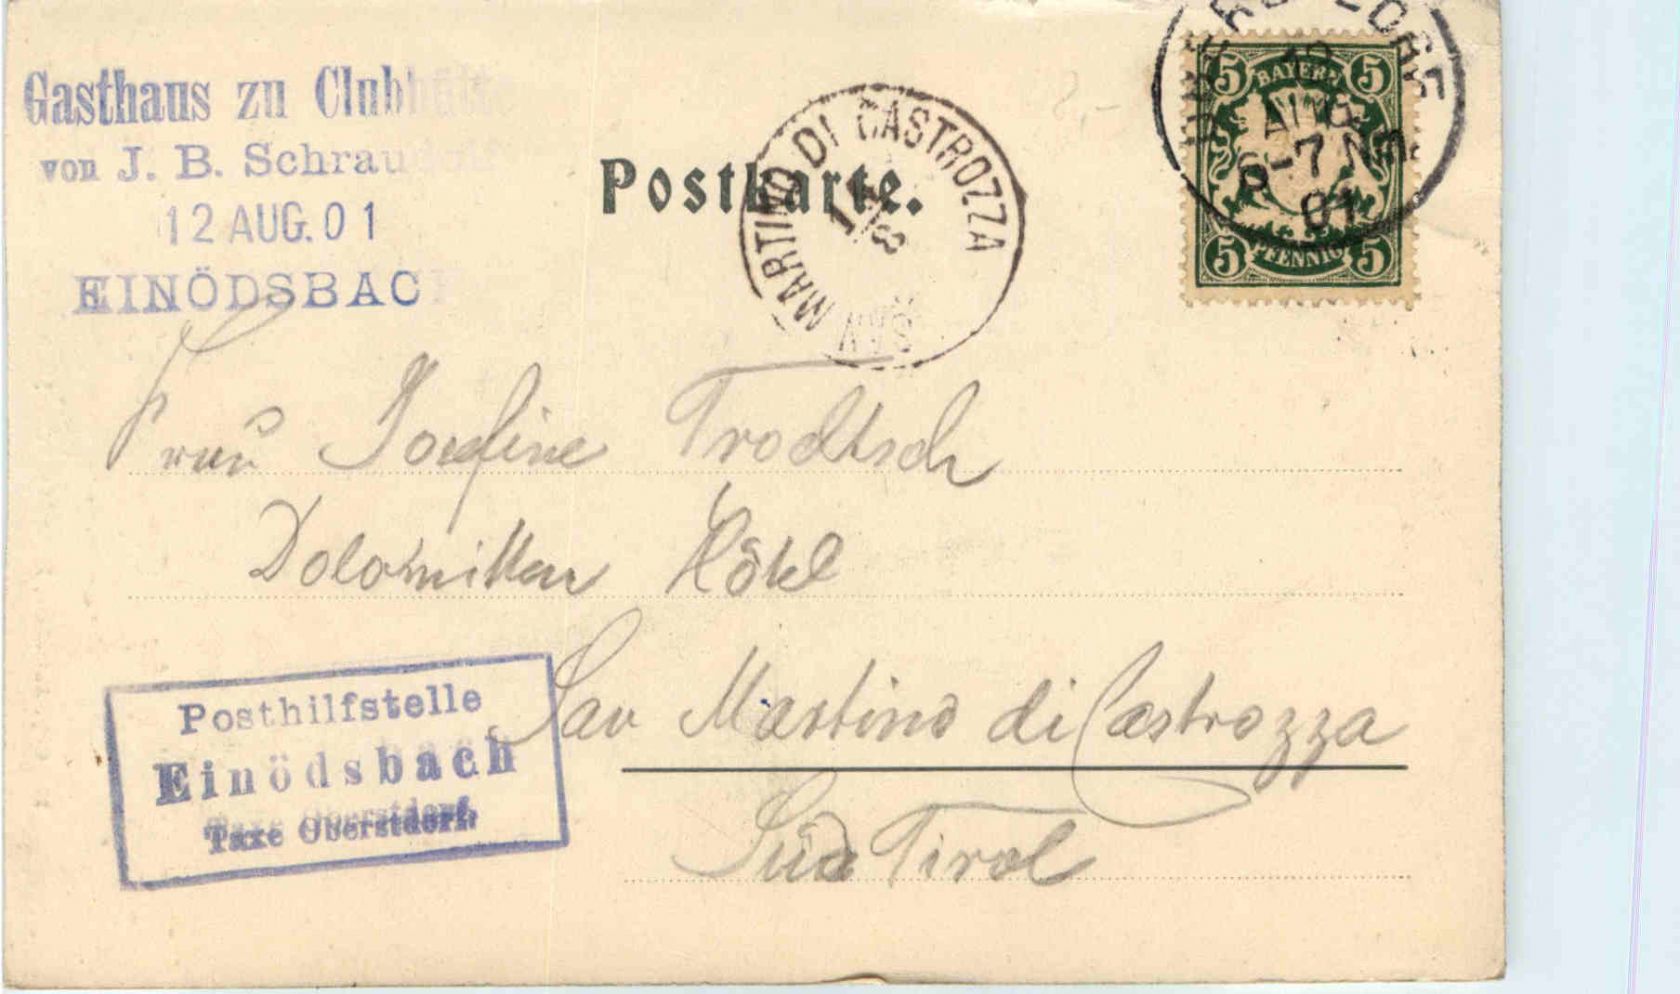 Gasthaus zu Clubhütte
von J. B. Schraudolf
12 AUG. 01
EINÖDSBACH
Postkarte.
SAN MARTINO DI CASTROZZA
BAYERN
5 5
5 5
PFENNIG
12
AUG.
6-7 N
01
Frau Josefine Trodtsch
Dolomitten Hôtel
San Martino di Castrozza
Süd Tirol
Posthilfstelle
Einödsbach
Taxe Oberstdorf.